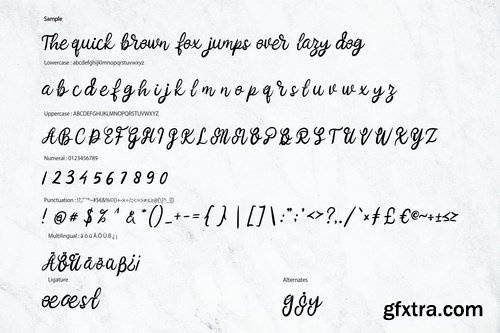 Sample
The quick brown fox jumps over lazy dog
Lowercase : abcdefghijklmnopqrstuvwxyz
a b c d e f g h i j k l m n o p q r s t u v w x y z
Uppercase : ABCDEFGHIJKLMNOPQRSTUVWXYZ
A B C D E F G H I J K L M N O P Q R S T U V W X Y Z
Numeral : 0123456789
1 2 3 4 5 6 7 8 9 0
Punctuation :
! @ # $ % ^ & * ( ) _ + - = { } | [ ] \ : " ; ' < > ? , . / ` × ƒ £ € © ~ ÷ ± ≤ ≥
Multilingual : ä ö ü Ä Ö Ü ß ¿ ¡
Ligature
Alternates
g y
gfxtra.com